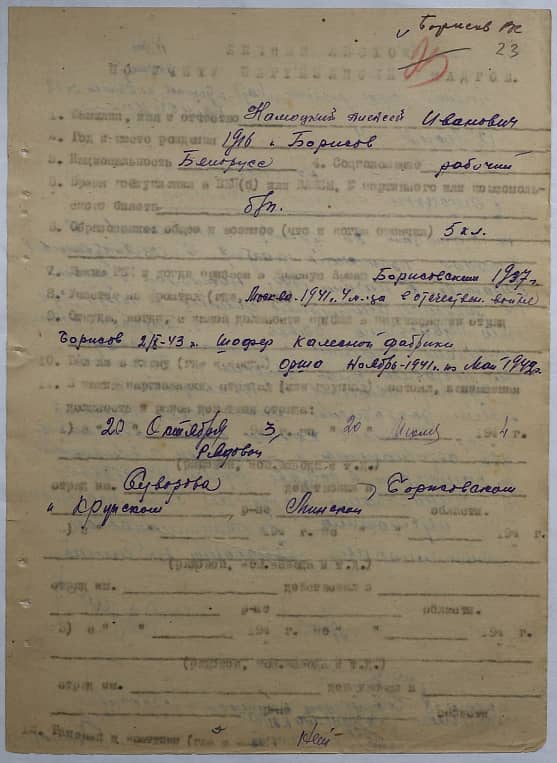 Борисов РК
23
ЛИЧНЫЙ ЛИСТОК
ПО УЧЕТУ ПАРТИЗАНСКИХ КАДРОВ.
1. Фамилия, имя и отчество Иванович
2. Год и место рождения 1916 г. Борисов
3. Национальность Белорусс 4. Соцположение рабочий
5. Время вступления в ВКП(б) или ВЛКСМ, № партийного или комсомоль-
ского билета б/п.
6. Образование: общее и военное (что и когда окончил) 5 кл.
7. Каким РВК и когда призван в Красную Армию Борисовским 1937 г.
8. Участие на фронтах (где, Москва-1941 г. 4 м-ца в отечествен. войне)
9. Откуда, когда, с какой должности прибыл в партизанский отряд
Борисов 2/X-43 г. шофер фабрики
10. Был ли в плену (где Орша Ноябрь-1941 г. по Май 1942 г.
11. В каких партизанских отрядах (или группах) состоял, занимаемая
должность и район действия отряда:
1) с " 20 " Октября 1943 г. по " 20 " Июля 1944 г.
Рядовой
(рядовой, ком.взвода и т.д.)
отряд им. Суворова действовал в Борисовском
и Крупском р-не Минской области.
2) с " " 194 г. по 194 г.
(рядовой, ком.взвода и т.д.)
отряд им. действовал в
р-не области.
3) с " " 194 г. по " " 194 г.
(рядовой, ком.взвода и т.д.)
отряд им. действовал в
р-не области
12. Ранения и контузии (где и Нет